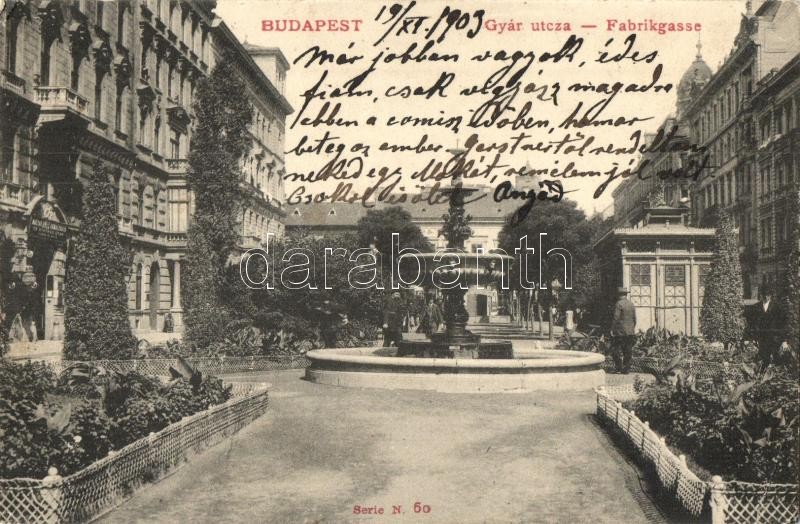 BUDAPEST 19/XI. 1903 Gyár utcza — Fabrikgasse
már jobban vagyok, édes
fiam, csak vigyázz magadra
ebben a comisz időben, hamar
beteg az ember. Gerstnertől rendeltem
neked egy , remélem jól volt.
Csókol ölel Anyád
darabanth
Serie N. 60